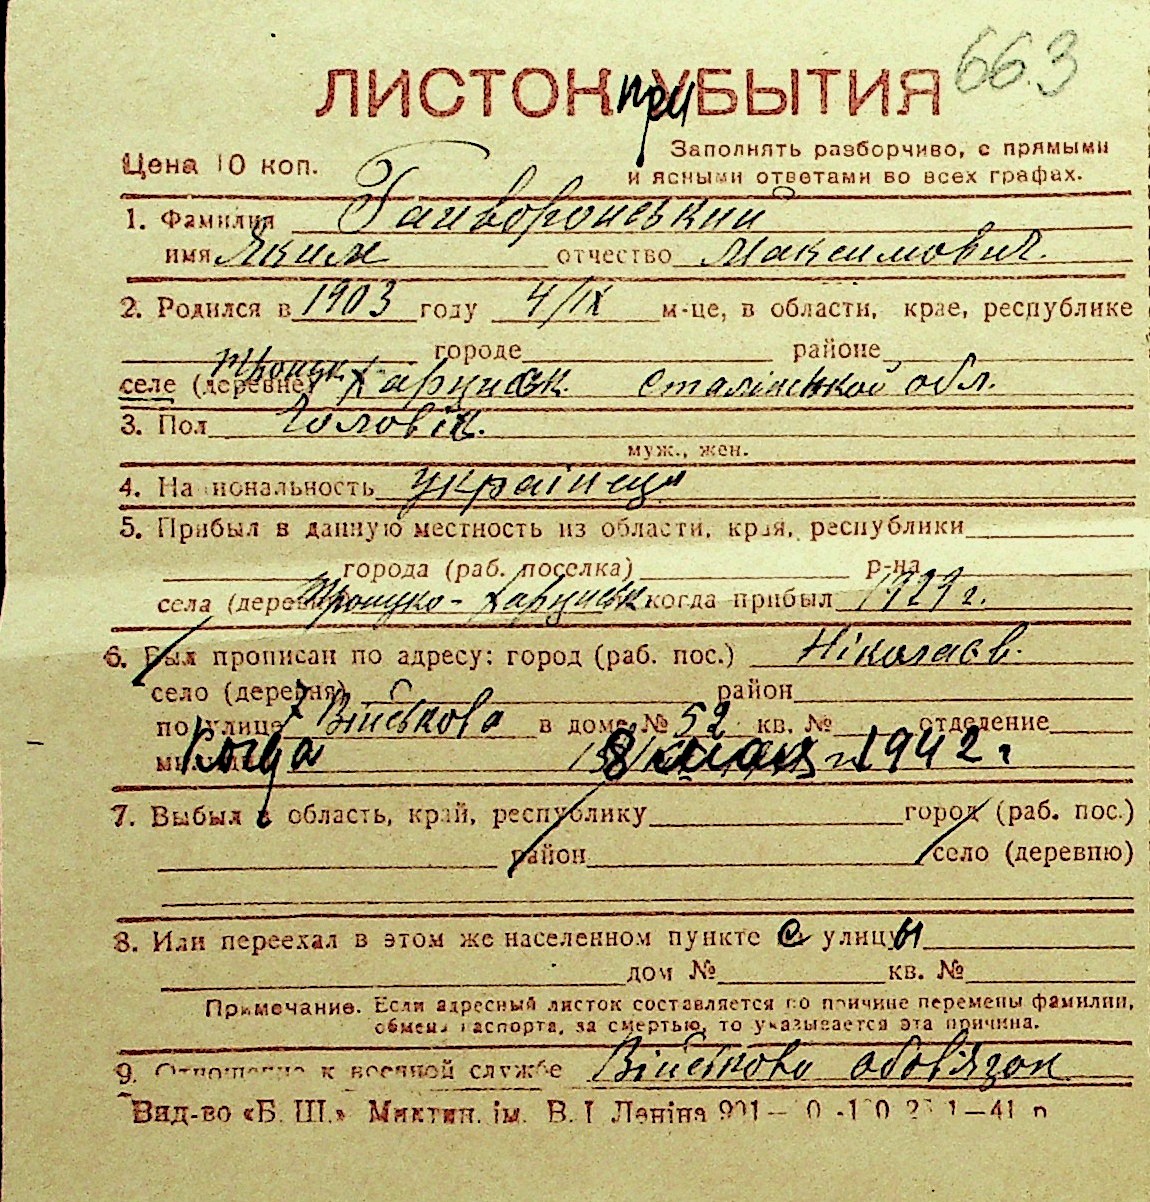 663
ЛИСТОК при УБЫТИЯ
Цена 10 коп.
Заполнять разборчиво, с прямыми
и ясными ответами во всех графах.
1. Фамилия Гайворонський
имя Яким отчество Максимович.
2. Родился в 1903 году 4/IX м-це, в области, крае, республике
городе районе
селе (деревне) Харцизск. Сталінської обл.
3. Пол Чоловік.
муж., жен.
4. Национальность Українець
5. Прибыл в данную местность из области, края, республики
города (раб. поселка) р-на
села (деревни) когда прибыл 1929 г.
6. Был прописан по адресу: город (раб. пос.) Ніколаєв.
село (деревня) район
по улице Військова в доме № 52 кв. № отделение
Когда 8 мая 1942 г
7. Выбыл в область, край, республику город (раб. пос.)
район село (деревню)
8. Или переехал в этом же населенном пункте с улицы
дом № кв. №
Примечание. Если адресный листок составляется по причине перемены фамилии,
обмена паспорта, за смертью, то указывается эта причина.
9. Отношение к военной службе Військово обов'язан
Вид-во «Б. Ш.» Миктин. ім. В. І Леніна